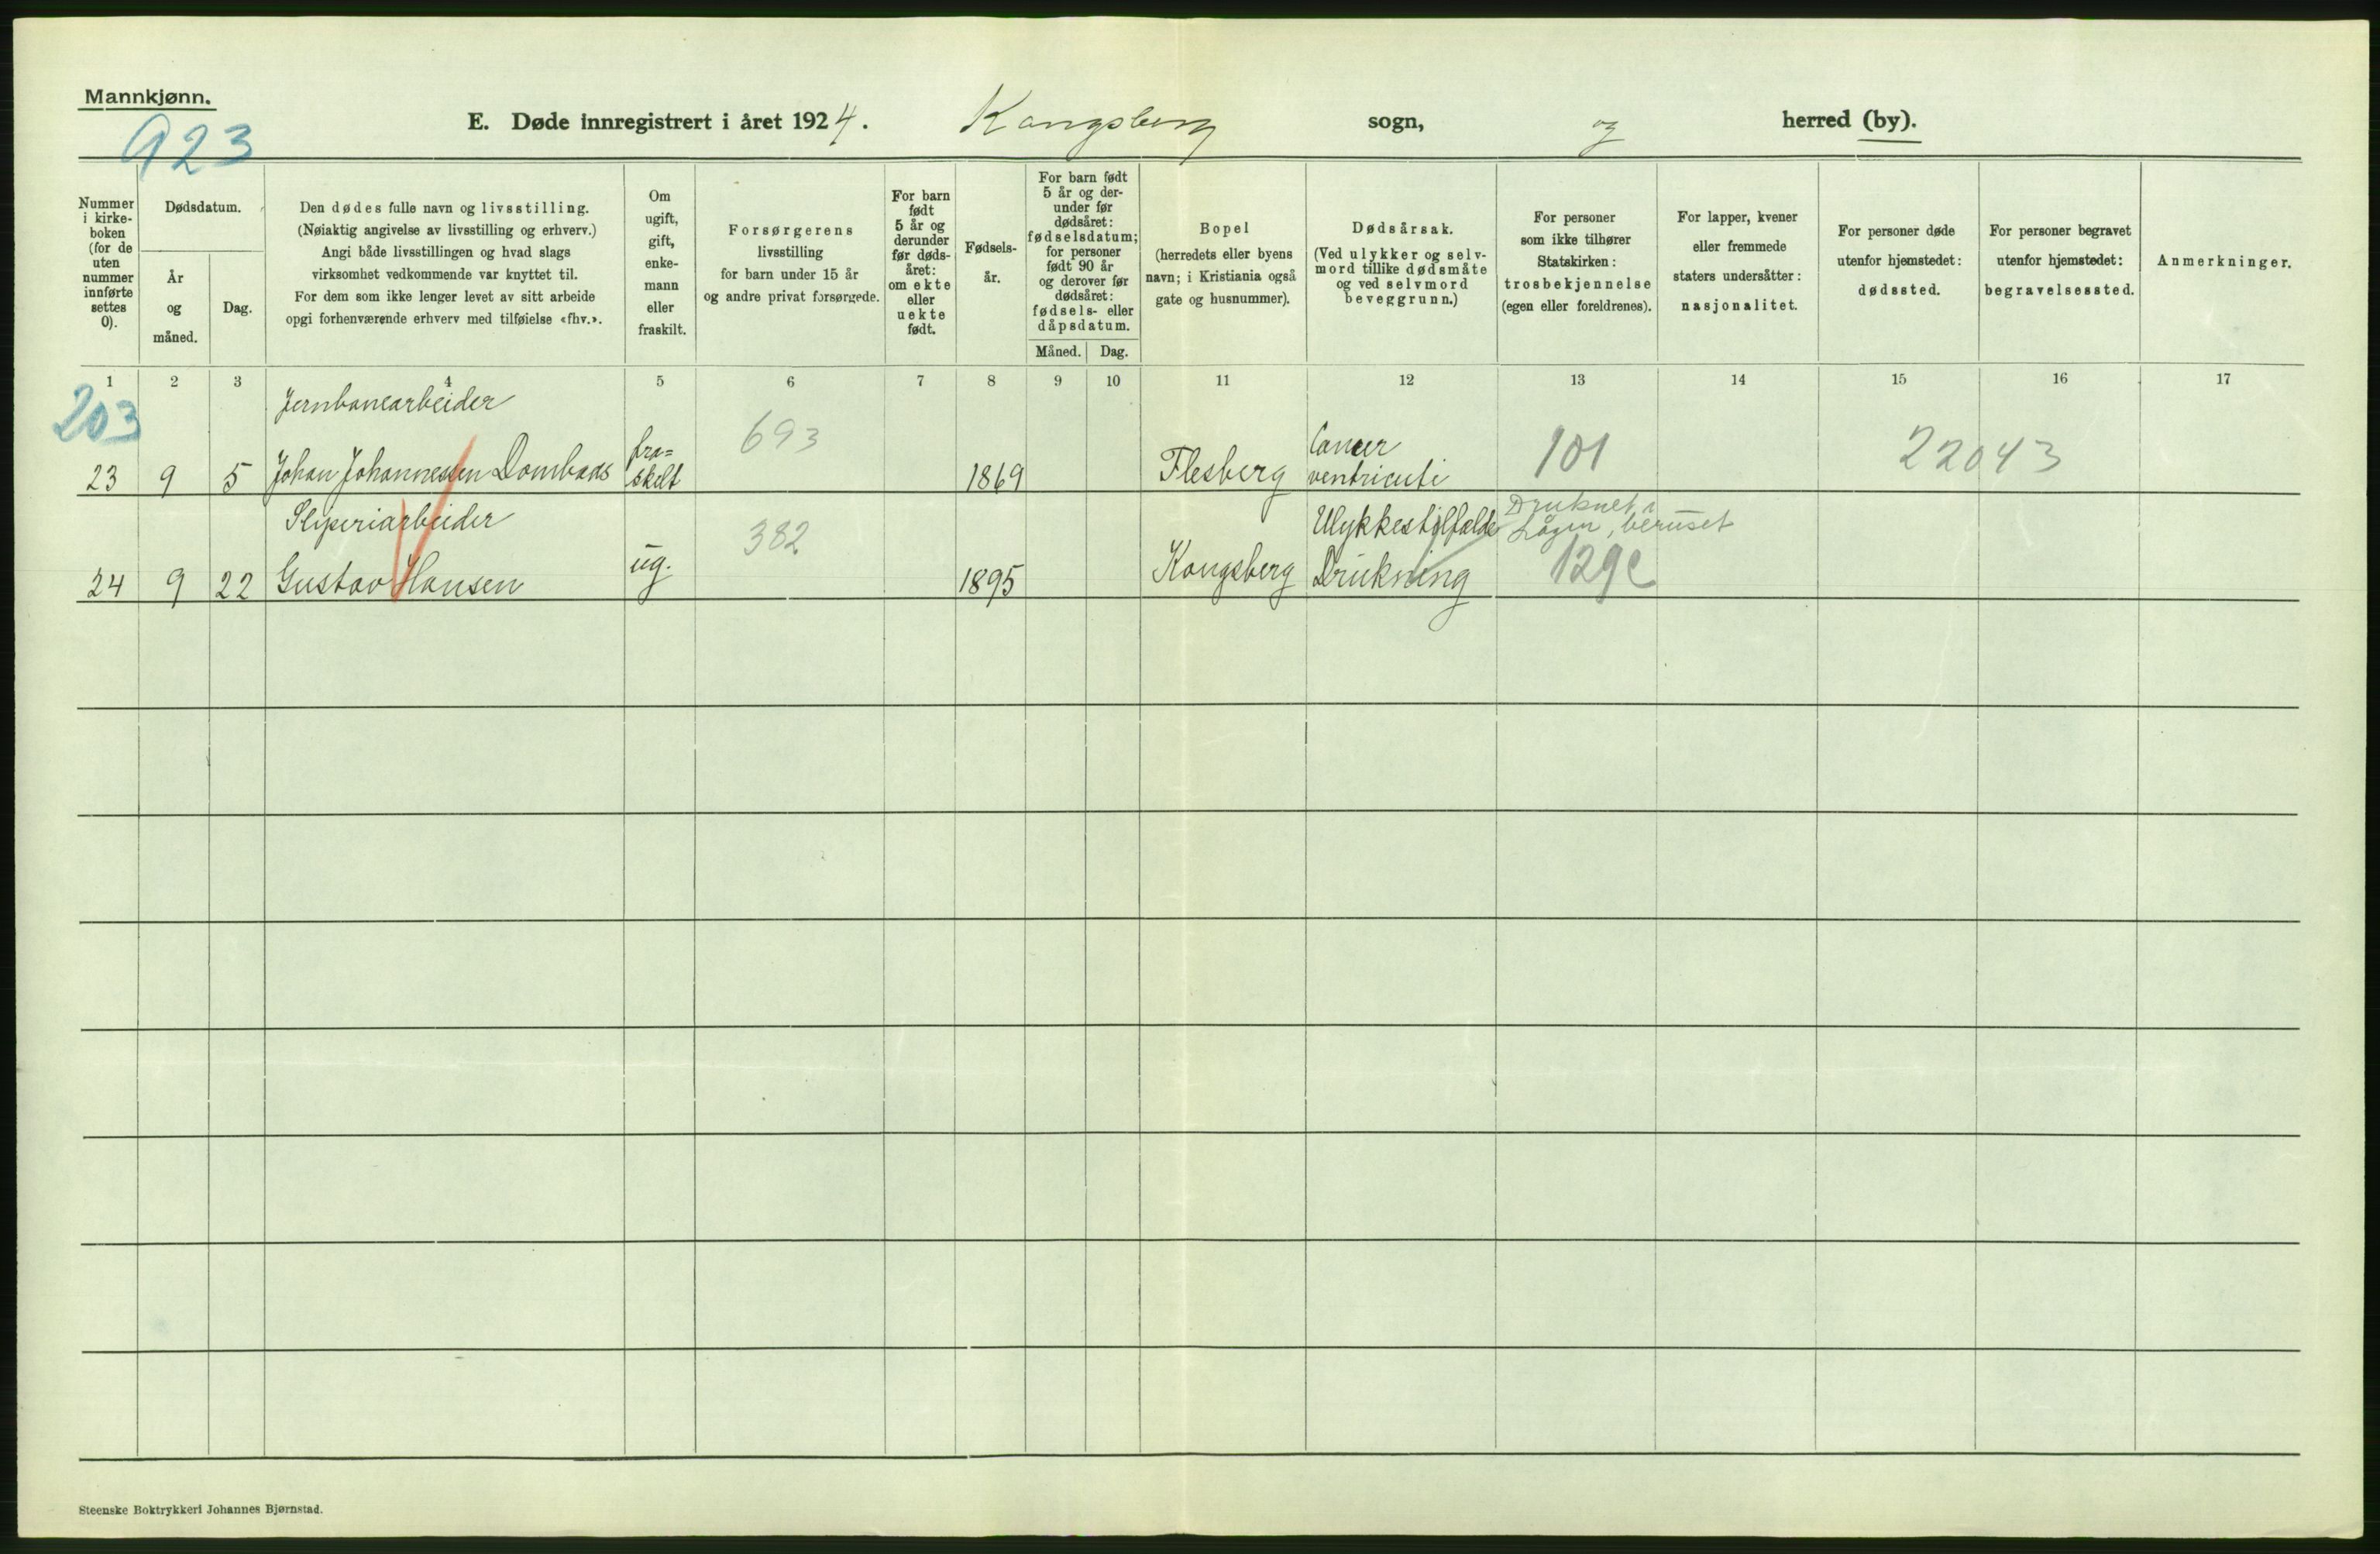 Mannkjønn.
923
E. Døde innregistrert i året 1924. Kongsberg sogn, og herred (by).
Nummer i kirke- boken (for de uten nummer innførte settes 0).
Dødsdatum.
År og måned.
Dag.
Den dødes fulle navn og livsstilling.
(Nøiaktig angivelse av livsstilling og erhverv.)
Angi både livsstillingen og hvad slags
virksomhet vedkommende var knyttet til.
For dem som ikke lenger levet av sitt arbeide
opgi forhenværende erhverv med tilføielse «fhv.».
Om ugift, gift, enke- mann eller fraskilt.
Forsørgerens
livsstilling
for barn under 15 år
og andre privat forsørgede.
For barn født 5 år og derunder før døds- året: om ekte eller uekte født.
Fødsels- år.
For barn født 5 år og der- under før dødsåret: fødselsdatum; for personer født 90 år og derover før dødsåret: fødsels- eller dåpsdatum.
Måned. Dag.
Bopel
(herredets eller byens
navn; i Kristiania også
gate og husnummer).
Dødsårsak.
(Ved ulykker og selv-
mord tillike dødsmåte
og ved selvmord
beveggrunn.)
For personer
som ikke tilhører
Statskirken:
trosbekjennelse
(egen eller foreldrenes).
For lapper, kvener
eller fremmede
staters undersåtter:
nasjonalitet.
For personer døde
utenfor hjemstedet:
dødssted.
For personer begravet
utenfor hjemstedet:
begravelsessted.
Anmerkninger.
1 2 3 4 5 6 7 8 9 10 11 12 13 14 15 16 17
203
Jernbanearbeider
23 9 5 Johan Johannessen Dombaas fra= skelt 693 1869 Flesberg Cancer ventriculi 101 22043
Sliperiarbeider
24 9 22 Gustav Hansen ug. 382 1895 Kongsberg Ulykkestilfælde Drukning
Druknet i
Lågen, beruset
129e
Steenske Boktrykkeri Johannes Bjørnstad.